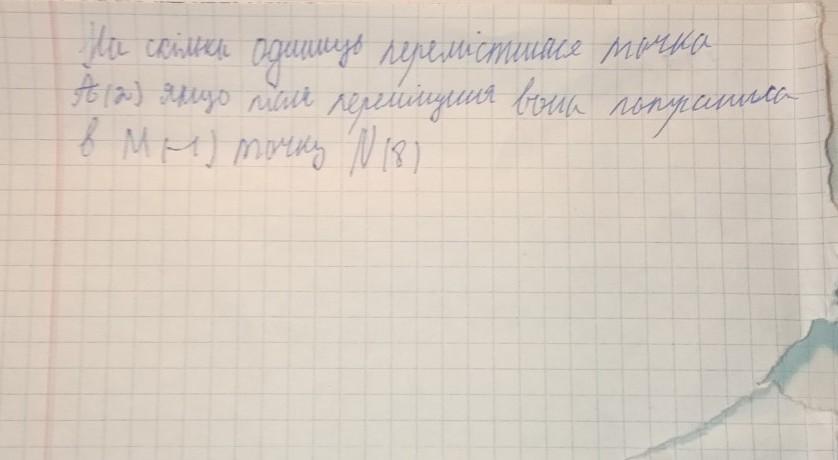 На скільки одиниць перемістилася точка
А(2) якщо після переміщення вона потрапила
в М(-1) точку N(8)